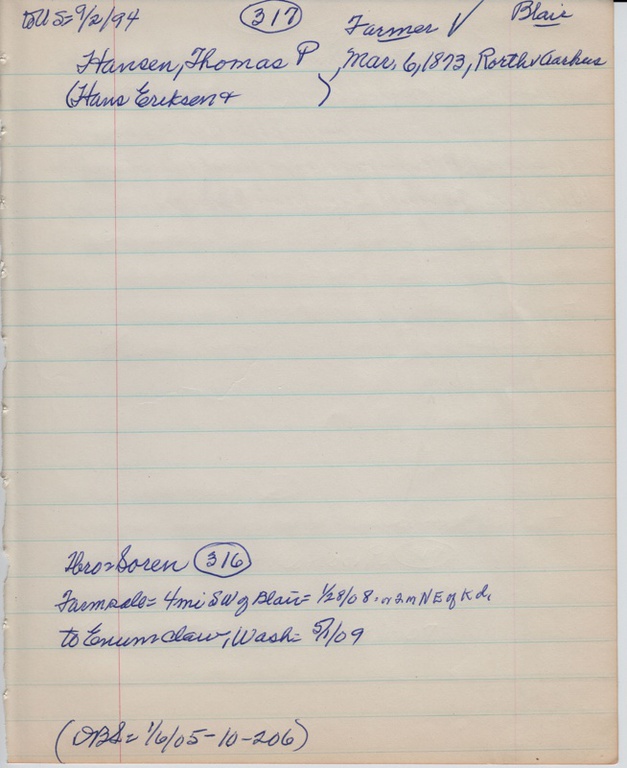 to US=9/2/94 (317) Farmer ✓ Blair
Hansen, Thomas P , Mar. 6, 1873, Rorth v Aarhus
(Hans Eriksen + )
Bro=Soren (316)
Farmsale= 4 mi SW of Blair= 1/28/08. or 2m NE of Kd.
to Enumclaw, Wash= 5/1/09
(OBS= 1/6/05-10-206)